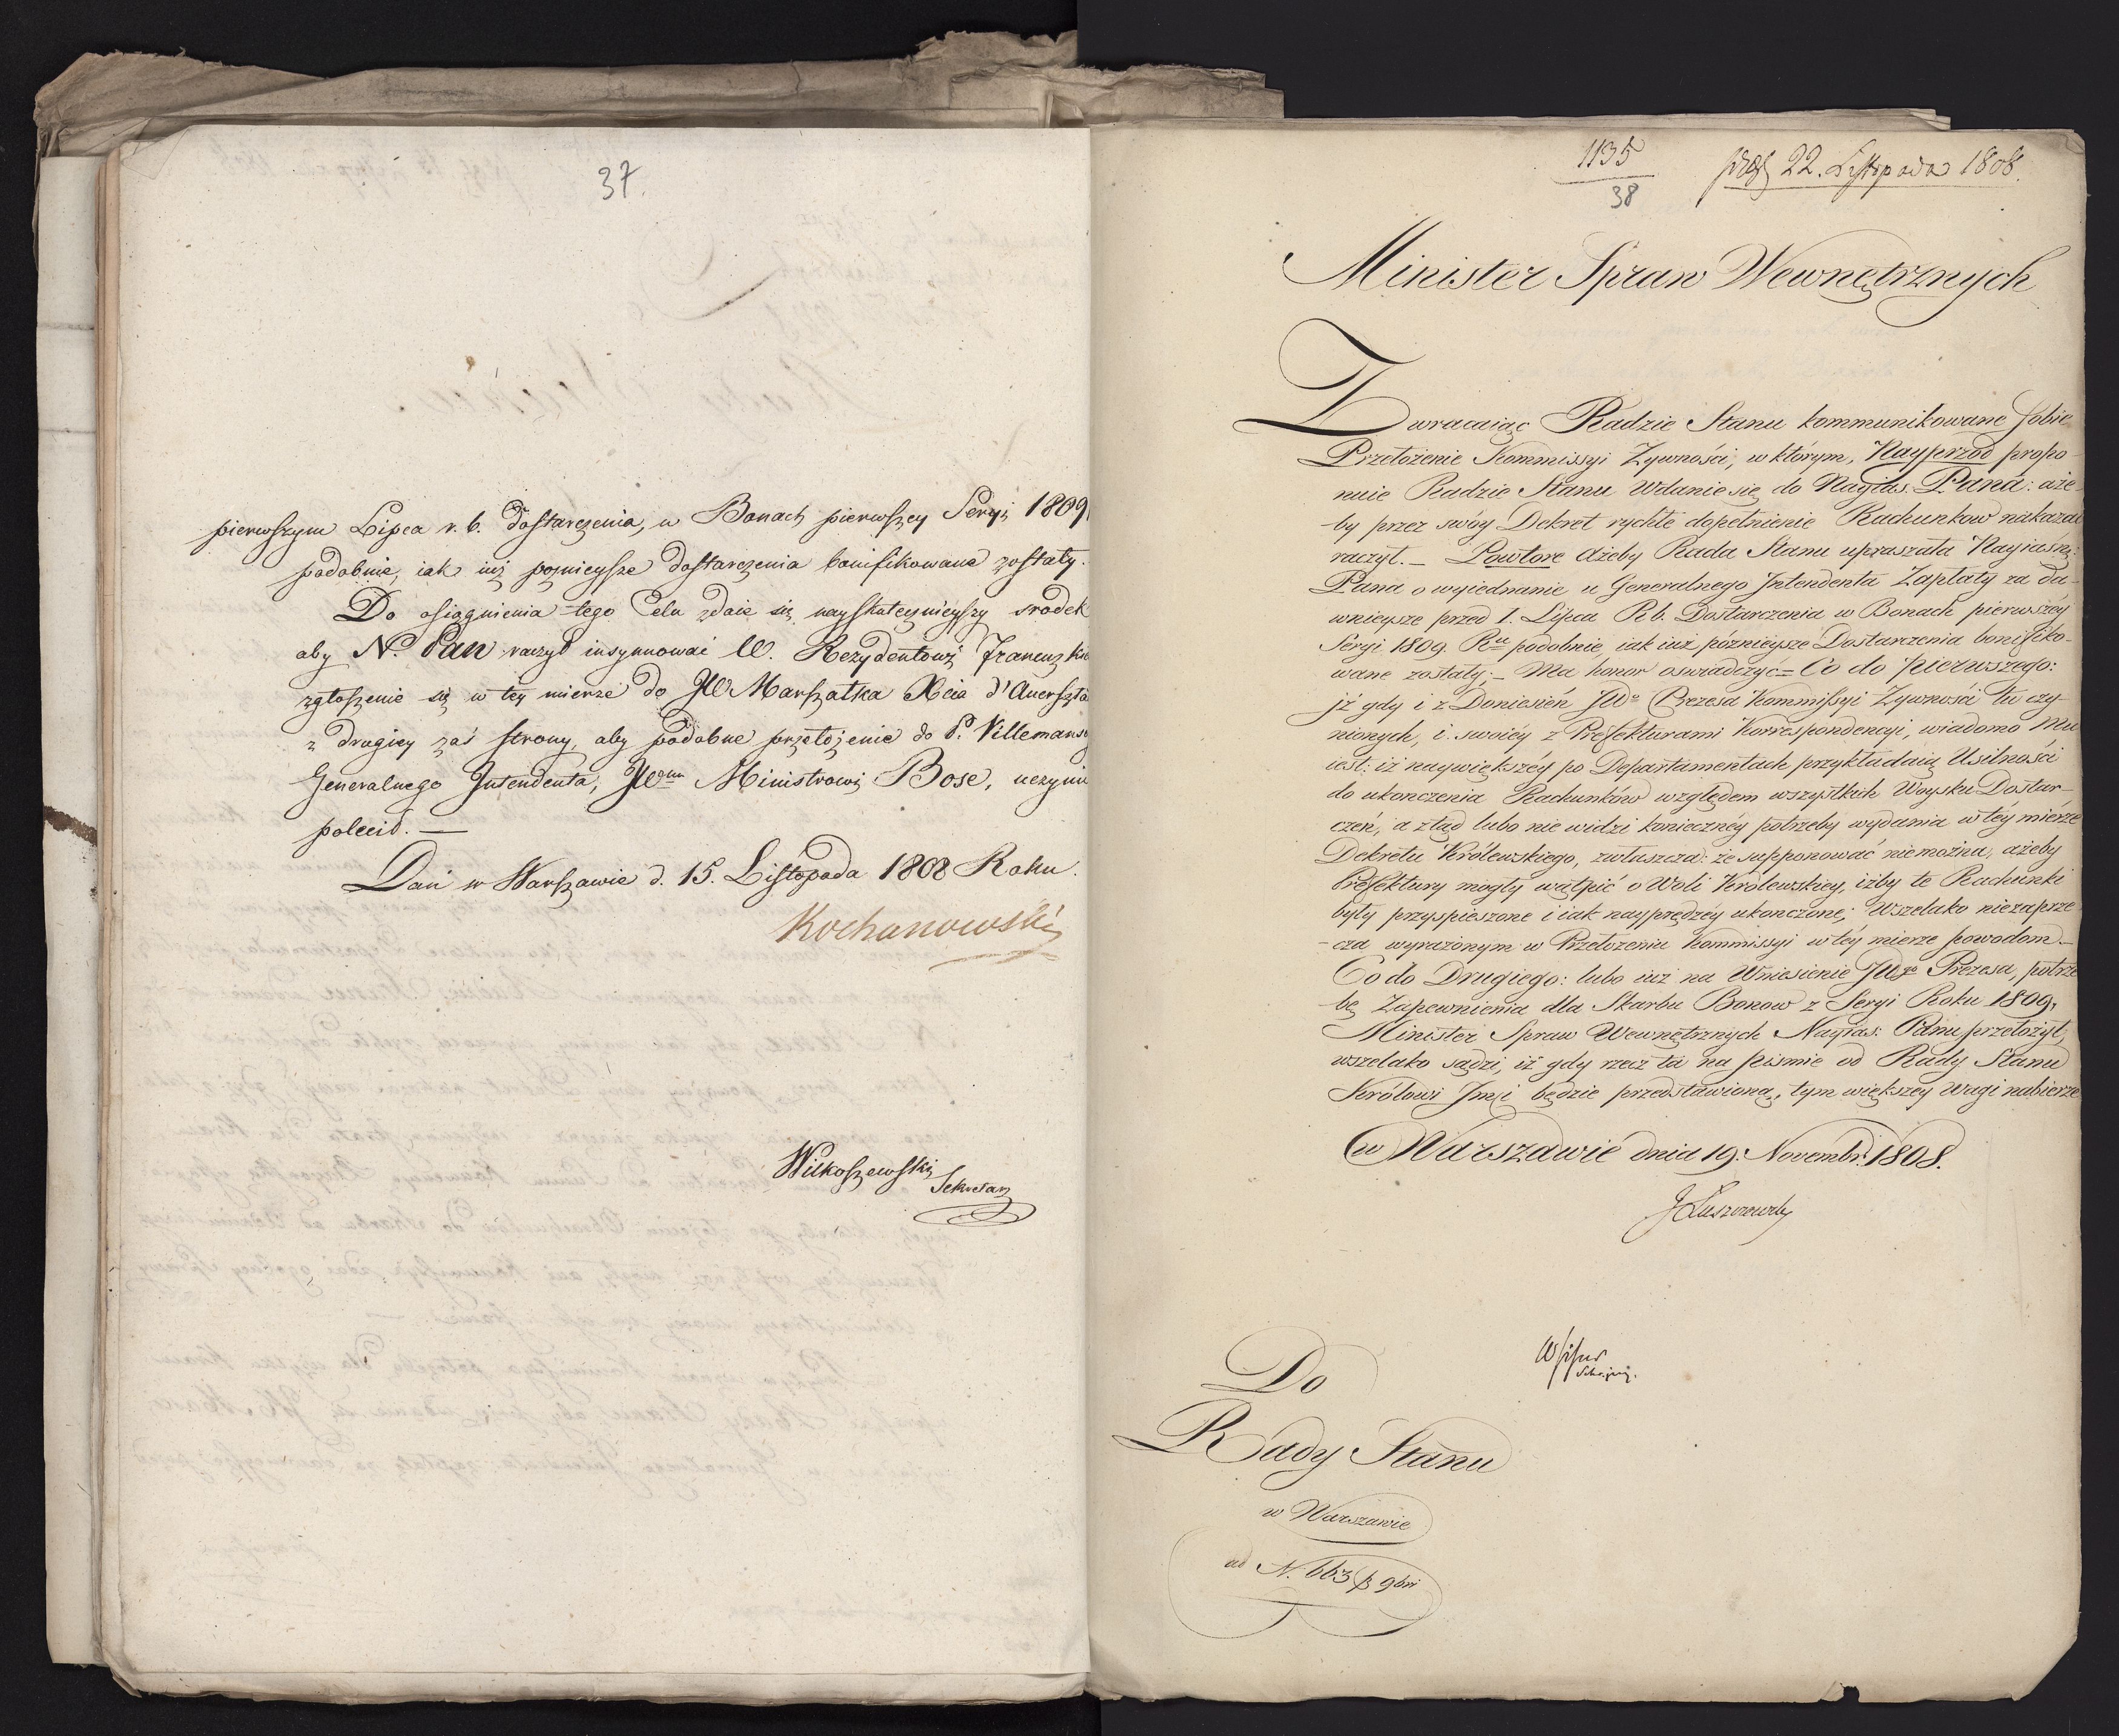 37.
pierwszym Lipca r. b. dostarczenia, w Bonach pierwszey Seryi 1809
podobnie, iak iuż poznieysze dostarczenia bonifikowane zostały.
Do osiągnienia tego Celu zdaie się nayskutecznieyszy srodek
aby N. Pan raczył insynuować W. Rezydentowi Francuzki
zgłoszenie się w tey mierze do JW Marszałka Xcia d'Auerszta
z drugiey zaś strony, aby podobne przełożenie do P. Villemans
Generalnego Intendenta, JW Ministrowi Bose, uczynić
polecił. —
Dań w Warszawie d. 15. Listopada 1808 Roku.
Kochanowski
Wilkoszewski
Sekretarz
1135
38
pres 22. Listopada 1808.
Minister Spraw Wewnętrznych
Zwracaiąc Radzie Stanu kommunikowane Sobie
Przełożenie Kommissyi Zywności, w którym, Nayprzod propo-
nuie Radzie Stanu Udanie się do Nayias. Pana: aże-
by przez swóy Dekret rychłe dopełnienie Rachunkow nakazać
raczył. — Powtore Ażeby Rada Stanu upraszała Nayiaśn:
Pana o wyiednanie u Generalnego Intendenta Zapłaty za da-
wnieysze przed 1. Lipca R. b. Dostarczenia w Bonach pierwszéy
Seryi 1809. Ru podobnie, iak iuż póznieysze Dostarczenia bonifiko-
wane zostały; — Ma honor oswiadczyć = Co do pierwszego:
iż gdy i z Doniesień JWo Prezesa Kommissyi Zywności tu czy-
nionych, i swoiéy z Prefekturami Korrespondencyi, wiadomo Mu
iest: iż naywiększéy po Departamentach przykładaią Usilności
do ukonczenia Rachunków względem wszystkich Woysku Dostar-
czeń, a ztąd lubo nie widzi koniecznéy potrzeby wydania w téy mierze
Dekretu Królewskiego, zwłaszcza: że supponować niemożna, ażeby
Prefektury mogły wątpić o Woli Królewskiey, iżby te Rachunki
były przyspieszone i iak nayprędzéy ukonczone; Wszelako niezaprze-
-cza wyrażonym w Przełożeniu Kommissyi w téy mierze powodom —
Co do Drugiego: lubo iuż na Wniesienie JWgo Prezesa, potrze-
bę Zapewnienia dla Skarbu Bonow z Seryi Roku 1809,
Minister Spraw Wewnętrznych Nayias: Panu przełożył,
wszelako sądzi, iż gdy rzecz ta na pismie od Rady Stanu
Królowi Jmci będzie przedstawioną, tym większey wagi nabierze
w Warszawie dnia 19. Novembr. 1808.
J Łuszczewsky
Do
Rady Stanu
w Warszawie
ad N. 663 9bri